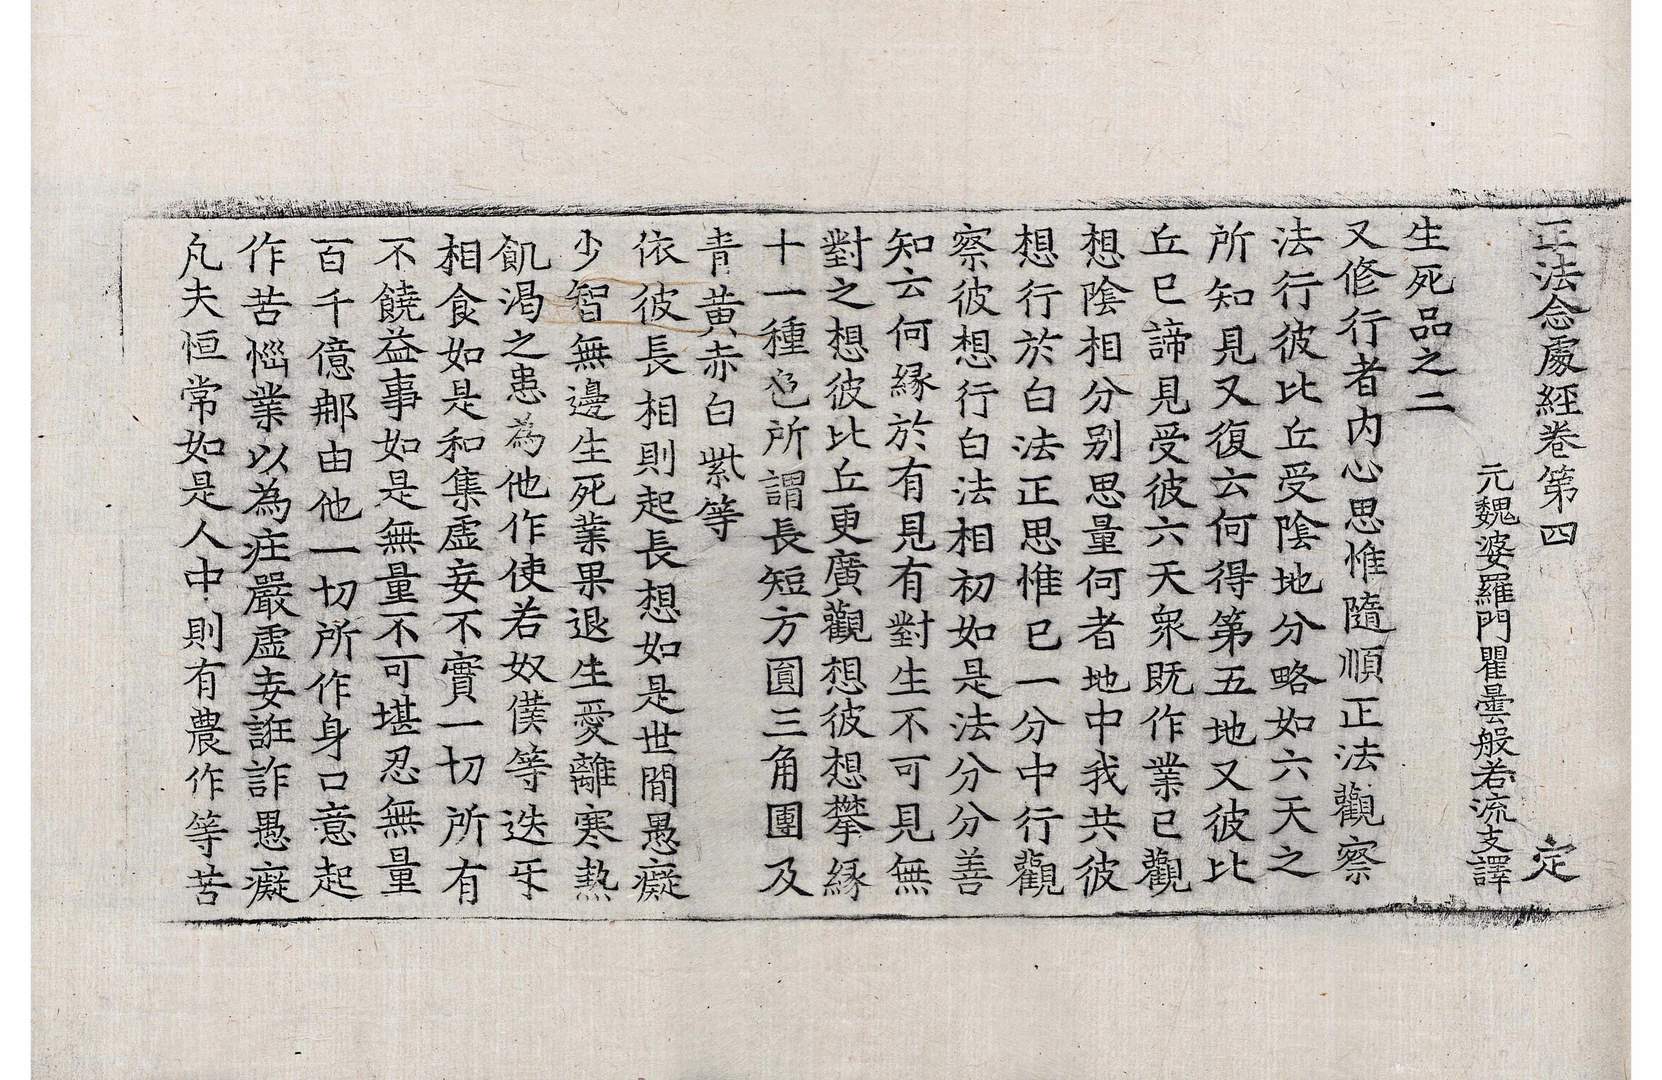 正法念處經卷第四 定
元魏婆羅門瞿曇般若流支譯
生死品之二
又修行者内心思惟隨順正法觀察
法行彼比丘受陰地分略如六天之
所知見又復云何得第五地又彼比
丘已諦見受彼六天衆既作業已觀
想陰相分別思量何者地中我共彼
想行於白法正思惟已一分中行觀
察彼想行白法相初如是法分分善
知云何緣於有見有對生不可見無
對之想彼比丘更廣觀想彼想攀緣
十一種色所謂長短方圓三角團及
青黃赤白紫等
依彼長相則起長想如是世間愚癡
少智無邊生死業果退生愛離寒熱
飢渴之患為他作使若奴僕等迭㸦
相食如是和集虛妄不實一切所有
不饒益事如是無量不可堪忍無量
百千億那由他一切所作身口意起
作苦惱業以為莊嚴虛妄誑詐愚癡
凡夫恒常如是人中則有農作等苦